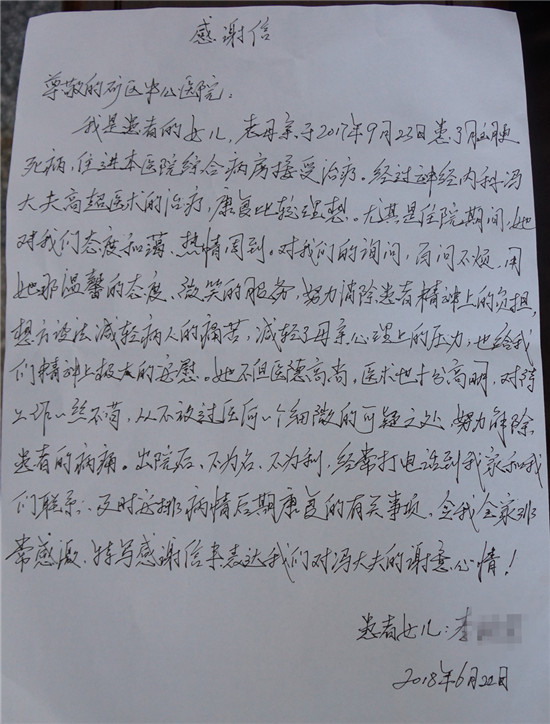 感谢信
尊敬的矿区中心医院：
我是患者的女儿，老母亲于2017年9月23日患了脑梗
死病，住进本医院综合病房接受治疗。经过神经内科冯
大夫高超医术的治疗，康复比较理想。尤其是住院期间，她
对我们态度和蔼、热情周到。对我们的询问，百问不烦，用
她那温馨的态度、微笑的服务，努力消除患者精神上的负担，
想方设法减轻病人的痛苦，减轻了母亲心理上的压力，也给我
们精神上极大的安慰。她不但医德高尚，医术也十分高明，对待
工作一丝不苟，从不放过任何一个细微的可疑之处，努力解除
患者的病痛。出院后、不为名、不为利，经常打电话到我家和我
们联系，及时安排病情后期康复的有关事项，令我全家非
常感激，特写感谢信来表达我们对冯大夫的谢意心情！
患者女儿：李
2018年6月22日